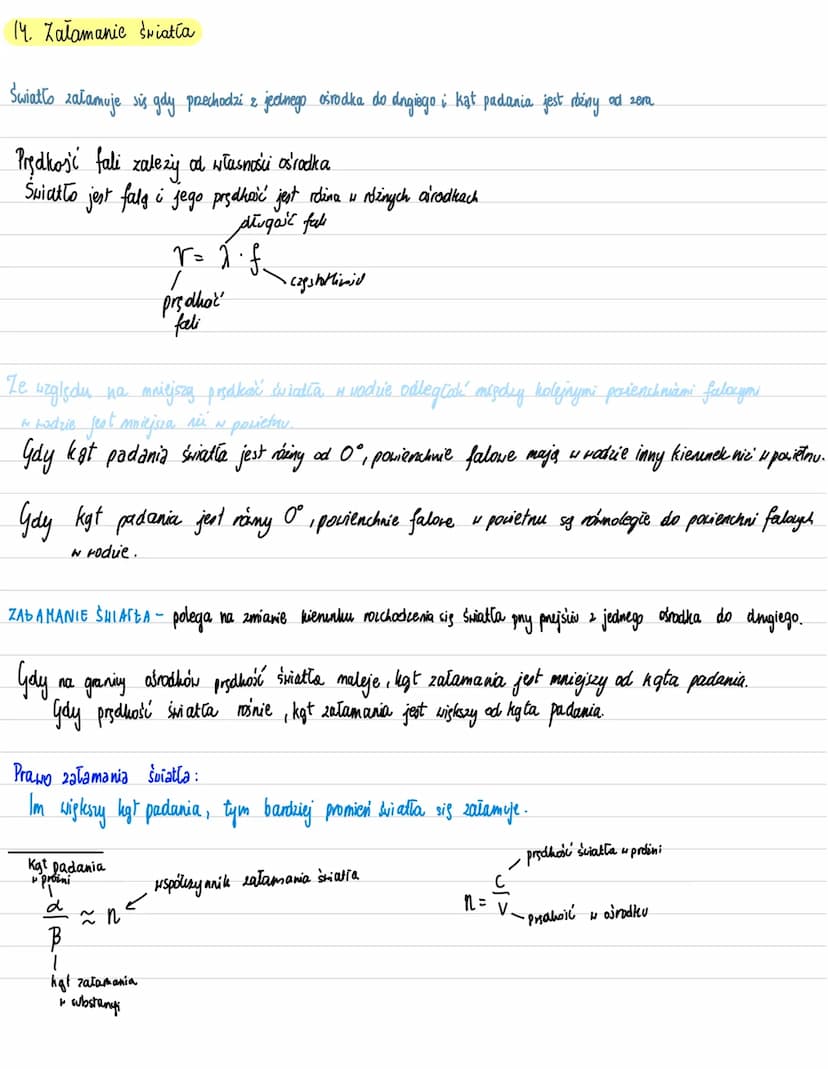 14. Załamanie światła
Światło załamuje się gdy przechodzi z jednego ośrodka do drugiego i kąt padania jest różny od zera
Prędkość fali zależy od własności ośrodka
Światło jest falą i jego prędkość jest różna w różnych ośrodkach
długość fali
v = λ · f
częstotliwość
prędkość
fali
Ze względu na mniejszą prędkość światła w wodzie odległość między kolejnymi powierzchniami falowymi
w wodzie jest mniejsza niż w powietrzu.
Gdy kąt padania światła jest różny od 0°, powierzchnie falowe mają w wodzie inny kierunek niż w powietrzu.
Gdy kąt padania jest równy 0°, powierzchnie falowe w powietrzu są równoległe do powierzchni falowych
w wodzie.
ZAŁAMANIE ŚWIATŁA – polega na zmianie kierunku rozchodzenia się światła przy przejściu z jednego ośrodka do drugiego.
Gdy na granicy ośrodków prędkość światła maleje, kąt załamania jest mniejszy od kąta padania.
Gdy prędkość światła rośnie, kąt załamania jest większy od kąta padania.
Prawo załamania światła:
Im większy kąt padania, tym bardziej promień światła się załamuje.
kąt padania
w próżni
współczynnik załamania światła
α/β ≈ n
kąt załamania
w substancji
prędkość światła w próżni
n = c/v
prędkość w ośrodku